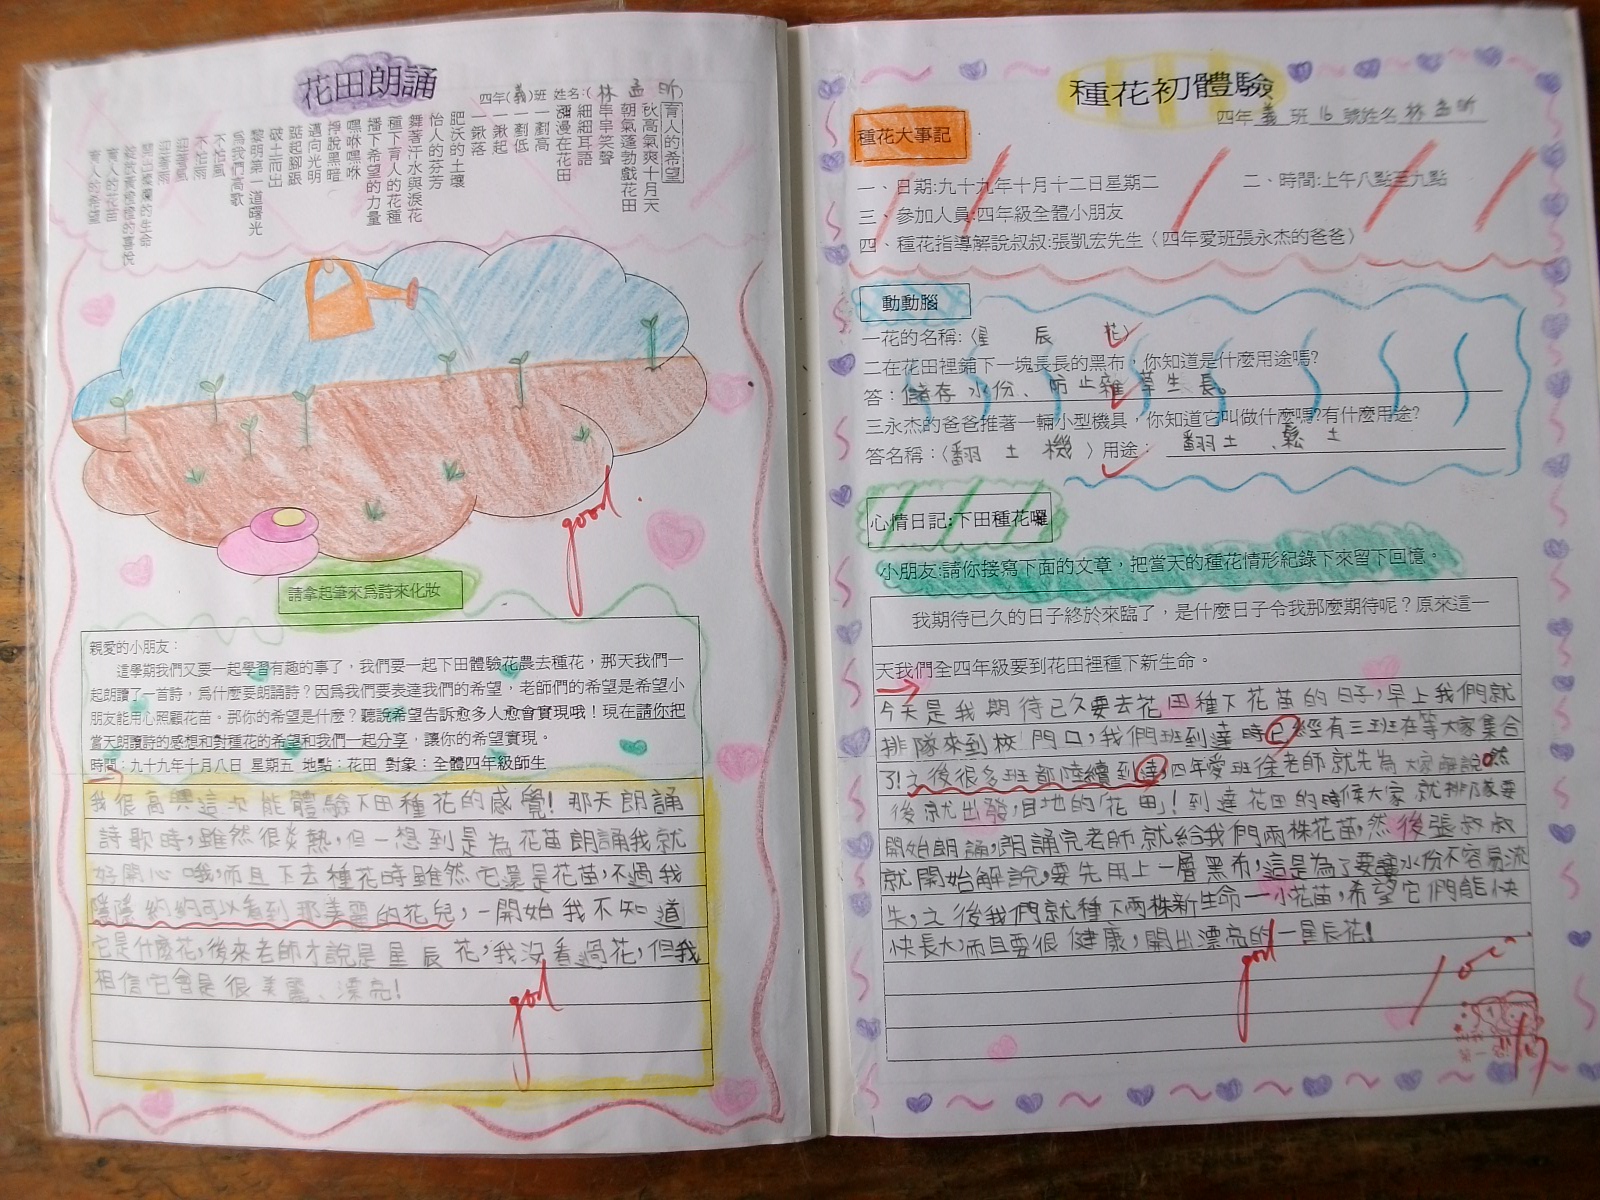 花田朗誦
四年(義)班 姓名:(林孟昕)
育人的希望
秋高氣爽十月天
朝氣蓬勃戲花田
串串笑聲
細細耳語
瀰漫在花田
一劃高
一劃低
一鍬起
一鍬落
肥沃的土壤
怡人的芬芳
舞著汗水與淚花
種下育人的花種
播下希望的力量
嘿咻嘿咻
掙脫黑暗
邁向光明
踮起腳跟
破土而出
黎明第一道曙光
為我們高歌
不怕風
不怕雨
迎著風
迎著雨
育人的花苗
育人的希望
good.
請拿起筆來為詩來化妝
親愛的小朋友:
這學期我們又要一起學習有趣的事了，我們要一起下田體驗花農去種花，那天我們一
起朗讀了一首詩，為什麼要朗誦詩？因為我們要表達我們的希望，老師們的希望是希望小
朋友能用心照顧花苗。那你的希望是什麼？聽說希望告訴愈多人愈會實現哦！現在請你把
當天朗讀詩的感想和對種花的希望和我們一起分享，讓你的希望實現。
時間:九十九年十月八日 星期五 地點:花田 對象:全體四年級師生
我很高興這次能體驗下田種花的感覺!那天朗誦
詩歌時,雖然很炎熱,但一想到是為花苗朗誦我就
好開心哦,而且下去種花時雖然它還是花苗,不過我
隱隱約約可以看到那美麗的花兒,一開始我不知道
它是什麼花,後來老師才說是星辰花,我沒看過花,但我
相信它會是很美麗、漂亮!
good
種花初體驗
四年義班16號姓名林孟昕
種花大事記
一、日期:九十九年十月十二日星期二 二、時間:上午八點至九點
三、參加人員:四年級全體小朋友
四、種花指導解說叔叔:張凱宏先生〈四年愛班張永杰的爸爸〉
動動腦
一花的名稱:〈星辰花〉
二在花田裡鋪下一塊長長的黑布，你知道是什麼用途嗎?
答:儲存水份、防止雜草生長。
三永杰的爸爸推著一輛小型機具，你知道它叫做什麼嗎?有什麼用途?
答名稱:〈翻土機〉用途:翻土、鬆土
心情日記:下田種花囉
小朋友:請你接寫下面的文章，把當天的種花情形紀錄下來留下回憶。
我期待已久的日子終於來臨了，是什麼日子令我那麼期待呢？原來這一
天我們全四年級要到花田裡種下新生命。
今天是我期待已久要去花田種下花苗的日子,早上我們就
排隊來到校門口,我們班到達時已經有三班在等大家集合
了!之後很多班都陸續到達,四年愛班徐老師就先為大家解說然
後就出發,目地的「花田」!到達花田的時候大家就排隊要
開始朗誦,朗誦完老師就給我們兩株花苗,然後張叔叔
就開始解說,要先用上一層黑布,這是為了要讓水份不容易流
失,之後我們就種下兩株新生命一小花苗,希望它們能快
快長大,而且要很健康,開出漂亮的一星辰花!
good
100